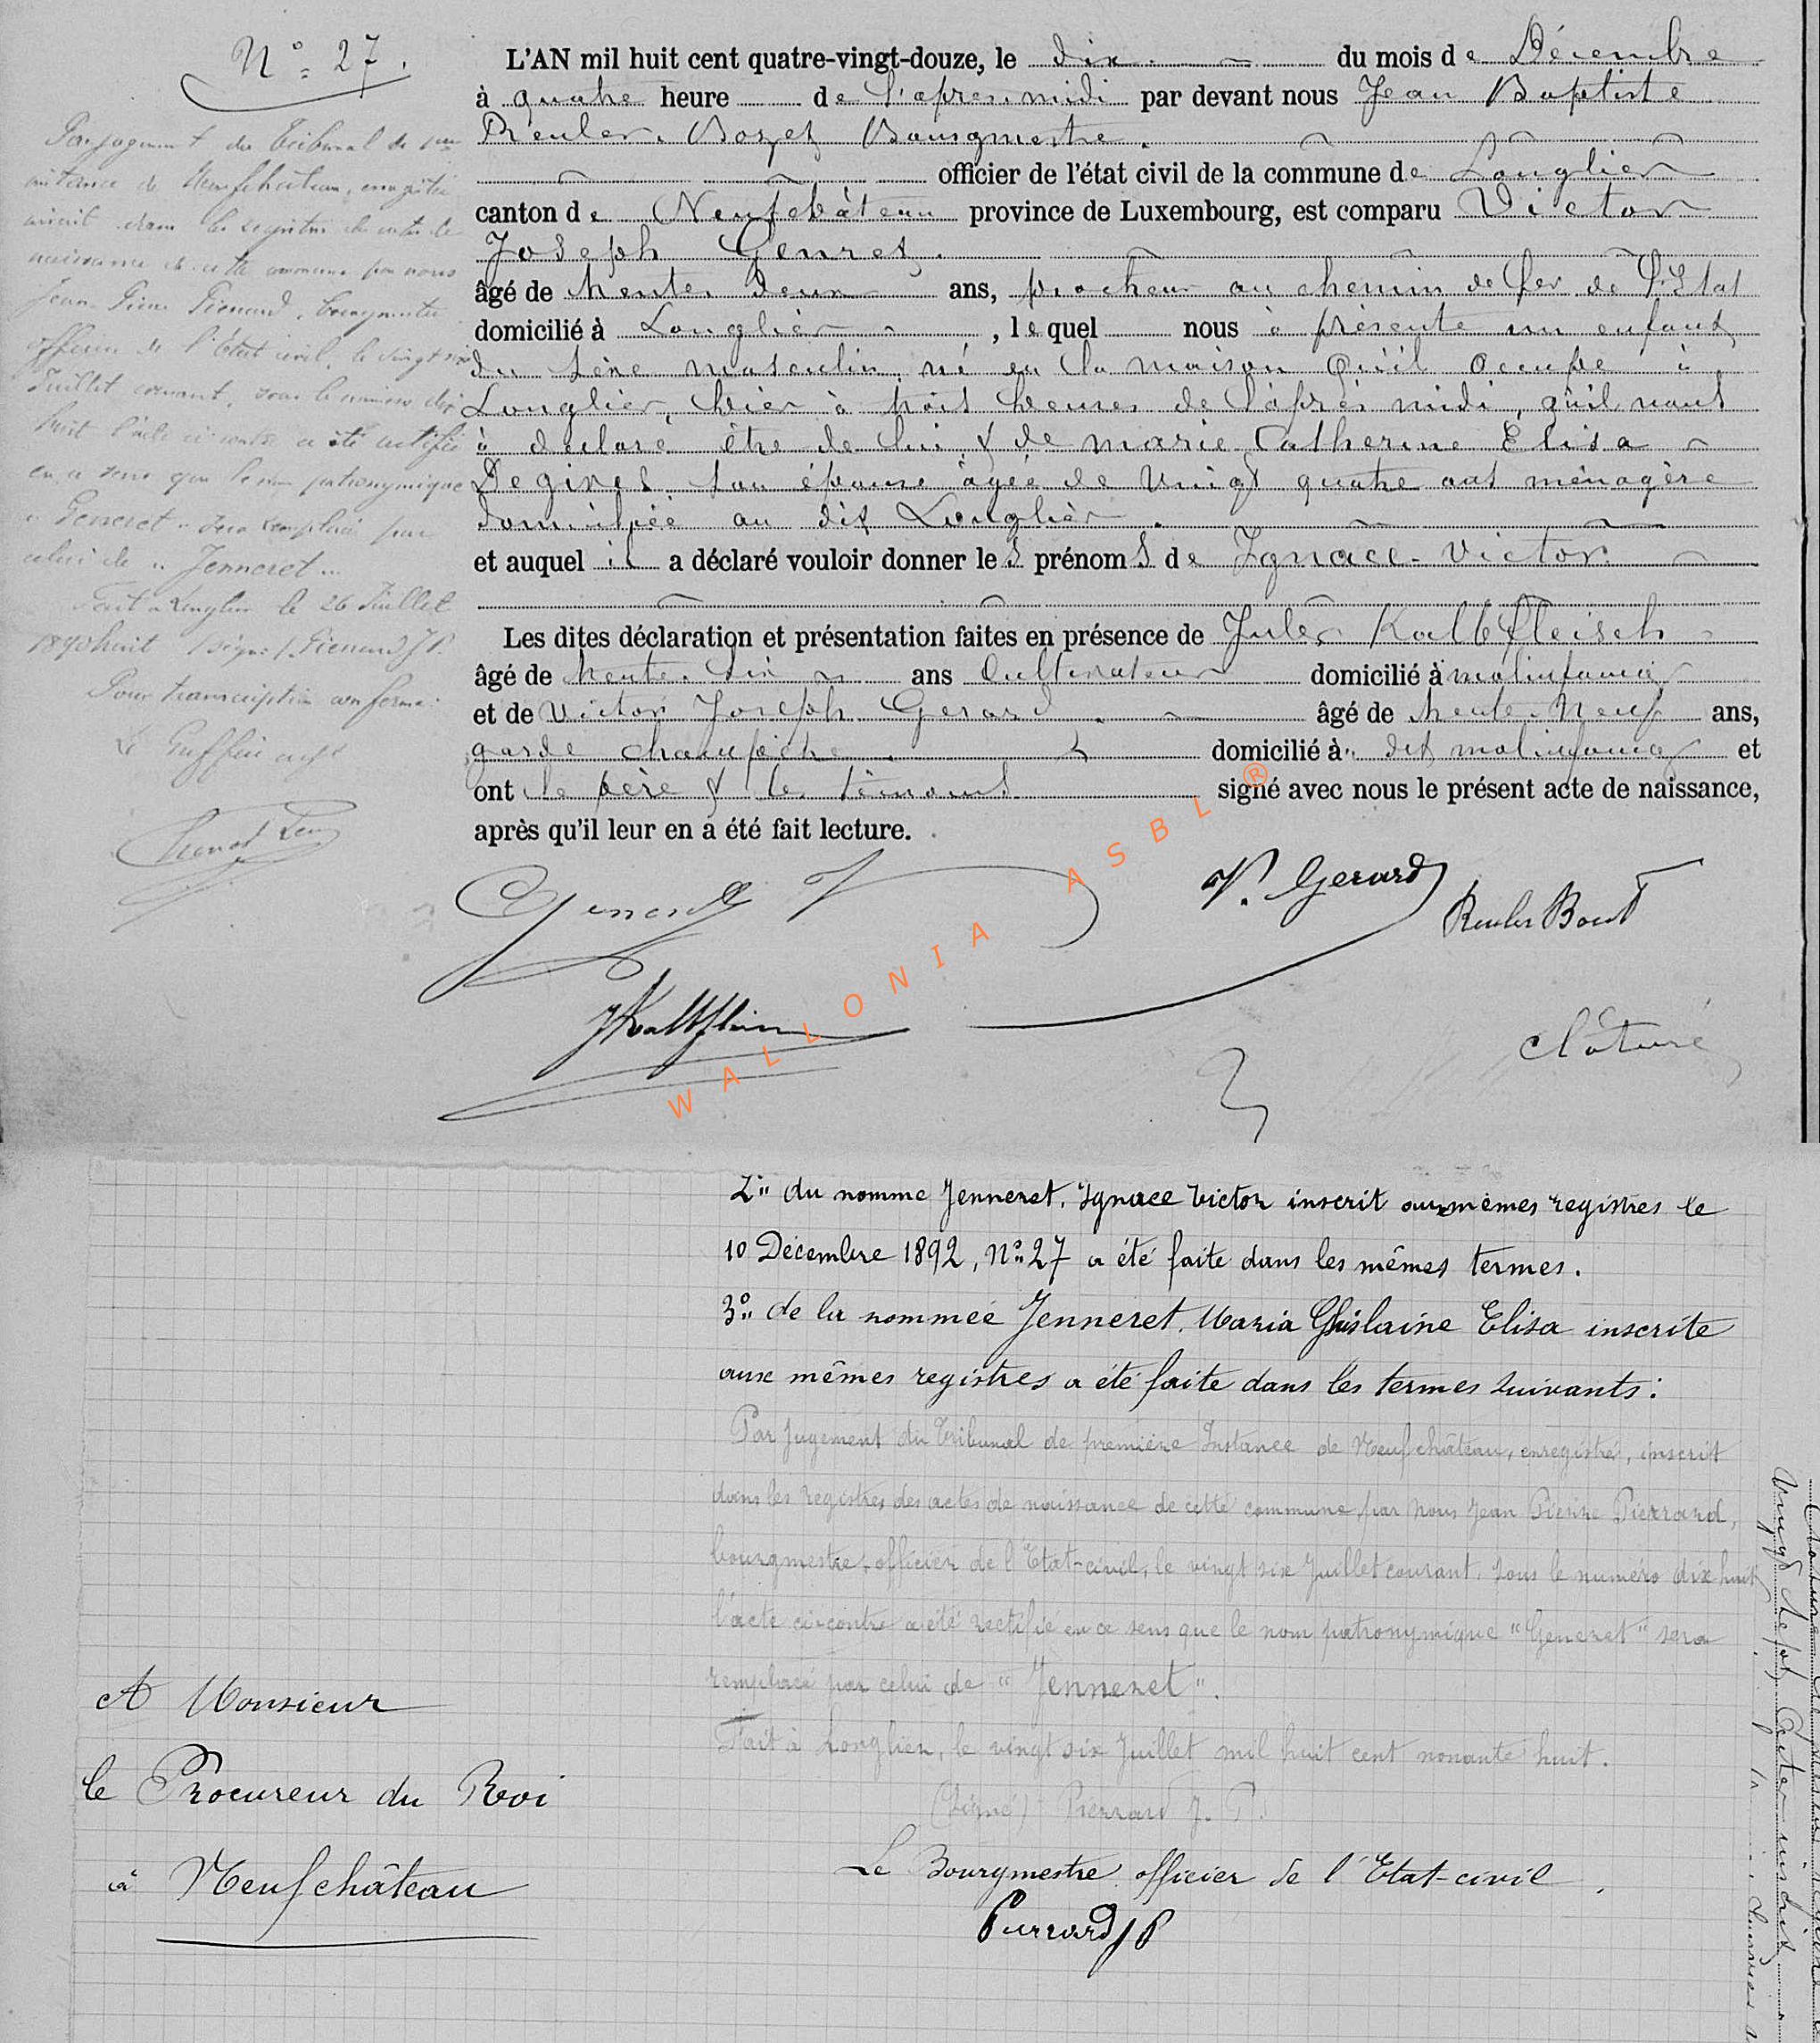 N° 27.
Par jugement du tribunal de 1ère
instance de Neufchâteau, enregistré
inscrit dans les registres des actes de
naissance de cette commune par nous
Jean Pierre Pierrard, bourgmestre
officier de l'état civil, le vingt six
Juillet courant, sous le numéro dix
huit l'acte ci-contre a été rectifié
en ce sens que le nom patronymique
"Genneret" sera remplacé par
celui de "Jenneret"
Fait à Longlier le 26 Juillet
1890huit (signé) Pierrard J P.
Pour transcription conforme:
Le Greffier
L'AN mil huit cent quatre-vingt-douze, le dix du mois de Décembre
à quatre heure de l'après-midi par devant nous Jean Baptiste
Reuler-Bozet Bourgmestre.
officier de l'état civil de la commune de Longlier
canton de Neufchâteau province de Luxembourg, est comparu Victor
Joseph Genret.
âgé de trente-deux ans, piocheur au chemin de fer de l'Etat
domicilié à Longlier, lequel nous à présenté un enfant
du sèxe masculin, né en la maison qu'il occupe à
Longlier, hier à trois heures de l'après midi, qu'il nous
à déclaré être de lui & de marie Catherine Elisa
Degives son épouse âgée de vingt quatre ans ménagère
domiciliée au dit Longlier.
et auquel il a déclaré vouloir donner les prénoms de Ignace-Victor.
Les dites déclaration et présentation faites en présence de Jules Kalbfleisch
âgé de trente-six ans Cultivateur domicilié à molinfaing
et de Victor Joseph Gerard. âgé de trente-neuf ans,
garde champêtre. domicilié à dit molinfaing et
ont le père & les témoins signé avec nous le présent acte de naissance,
après qu'il leur en a été fait lecture.
V. Gerard
Reuler Bozet
JKalbfleisch
clôturé
WALLONIA ASBL ®
2° du nommé Jenneret, Ignace Victor inscrit aux mêmes registres le
10 Décembre 1892, N° 27 a été faite dans les mêmes termes.
3° de la nommée Jenneret, Maria Ghislaine Elisa inscrite
aux mêmes registres a été faite dans les termes suivants:
Par jugement du Tribunal de première Instance de Neufchâteau, enregistré, inscrit
dans les registres des actes de naissance de cette commune par nous Jean Pierre Pierrard,
bourgmestre, officier de l'Etat-civil, le vingt six Juillet courant, sous le numéro dix huit
l'acte ci-contre a été rectifié en ce sens que le nom patronymique "Generet" sera
remplacé par celui de "Jenneret".
Fait à Longlier, le vingt six Juillet mil huit cent nonante huit.
(Signé) Pierrard J. P.
Le Bourgmestre officier de l'Etat-civil
Pierrard J P
A Monsieur
le Procureur du Roi
à Neufchâteau